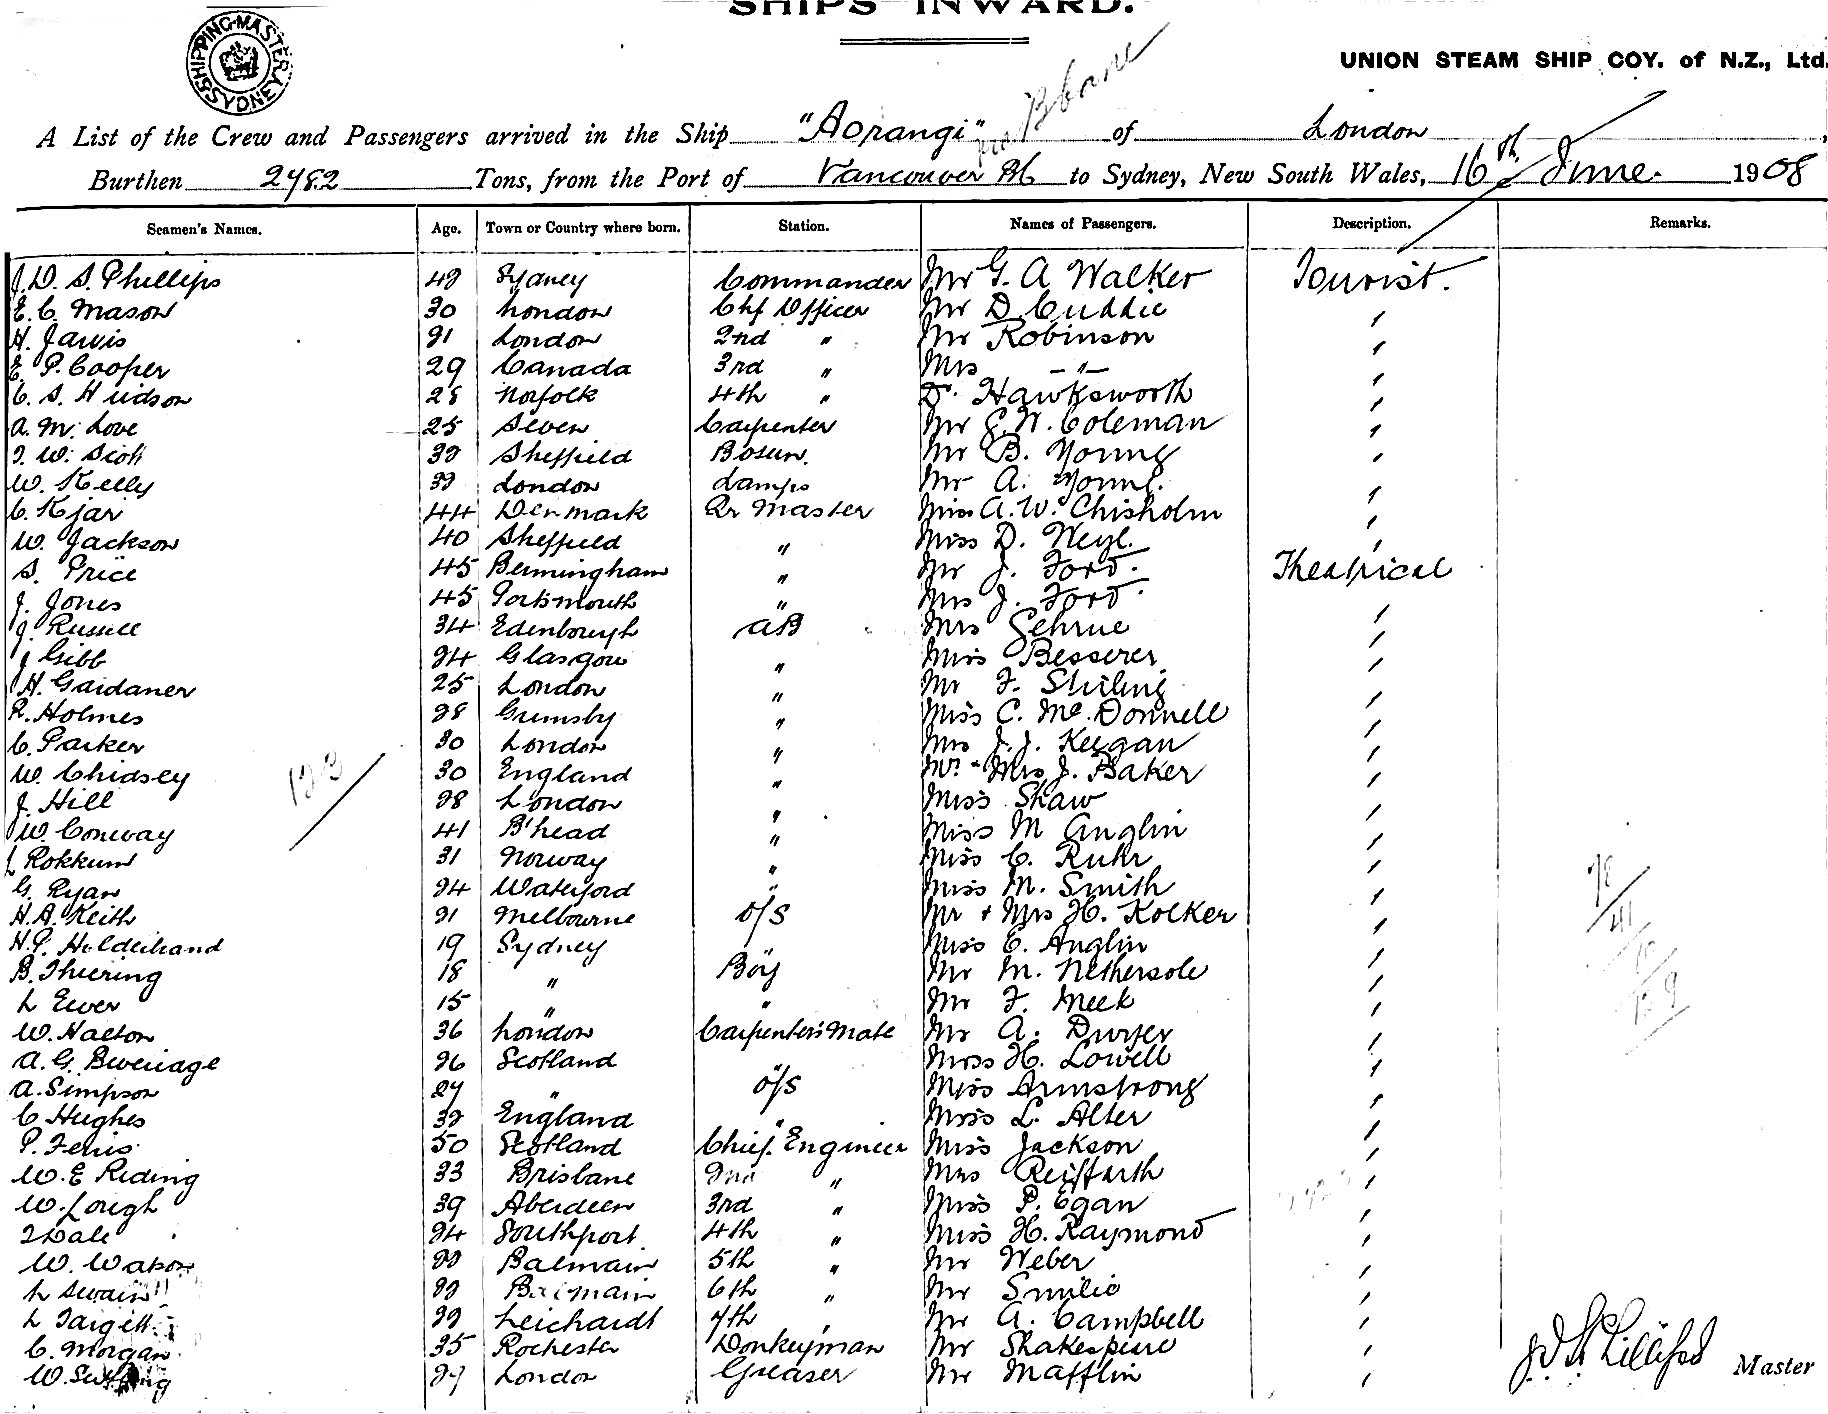 SHIPS INWARD.
SHIPPING MASTER SYDNEY
UNION STEAM SHIP COY. of N.Z., Ltd.
A List of the Crew and Passengers arrived in the Ship "Aorangi" of London
Burthen 2782 Tons, from the Port of Vancouver to Sydney, New South Wales, 16th June 1908
Seamen's Names. Age. Town or Country where born. Station. Names of Passengers. Description. Remarks.
J. D. S. Phillips Sydney Commander Mr G. A Walker Tourist.
E. C. Mason 30 London Chf Officer Mr D Cuddie "
H. Jarvis London 2nd " Mr Robinson "
E. P. Cooper 29 Canada 3rd " Mrs -"- "
C. S. Hudson 28 Norfolk 4th " Dr. Hawksworth "
A. M. Love 25 Seven Carpenter Mr Coleman "
W. Scott Sheffield Bosun. Mr B. Young "
W. Kelly London Lamps Mr A. Young. "
C. Kjar 44 Denmark Qr Master Miss A. W. Chisholm "
W. Jackson 40 Sheffield " Miss D. "
S. Price 45 Bermingham " Mr J. Ford. Theatrical
J. Jones 45 Portsmouth " Mrs J. Ford. "
J. Russell 34 Edenborough AB Mrs Gehrue "
J Gibb 24 Glasgow " Miss Besserer "
H. Gardaner 25 London " Mr F. Stirling "
R. Holmes 28 Grimsby " Miss C. McDonnell "
C. Parker 30 London " J. J. Keegan "
W. Chidsey 30 England " Mr " Mrs J. Baker "
J. Hill 28 London " Miss Shaw "
W Conway 41 B'head " Miss M Anglin "
Rokkum 31 Norway " Miss C. Ruhr "
G. Ryan 24 Waterford " Miss M. Smith "
H. A. Keith 21 Melbourne o/s Mr + Mrs H. Kolker "
H. P. Holdebrand 19 Sydney " Miss E. Anglin "
B. Thiering 18 " Boy Mr M. Nethersole "
L Ewer 15 " " Mr F. Meek "
W. Halton 36 London Carpenter's Mate Mr A. Dwyer "
A. G. Beveriage 26 Scotland " Miss H. Lowell "
A. Simpson 27 " o/s Miss Armstrong "
C Hughes England " Miss L. Alter "
P. Ferris 50 Scotland Chief Engineer Miss Jackson "
W. E Riding 33 Brisbane 2nd " Mrs Reiffarth "
W. Lough 39 Aberdeen 3rd " Miss P. Egan "
Dale 24 Southport 4th " Miss H. Raymond "
W. Watson Balmain 5th " Mr Weber "
L Swain Balmain 6th " Mr Smilie "
L Targett Leichardt 7th " Mr A. Campbell "
C. Morgan 35 Rochester Donkeyman Mr Shakespeare "
W. London Greaser Mr Mafflin "
123
J D S Phillips Master